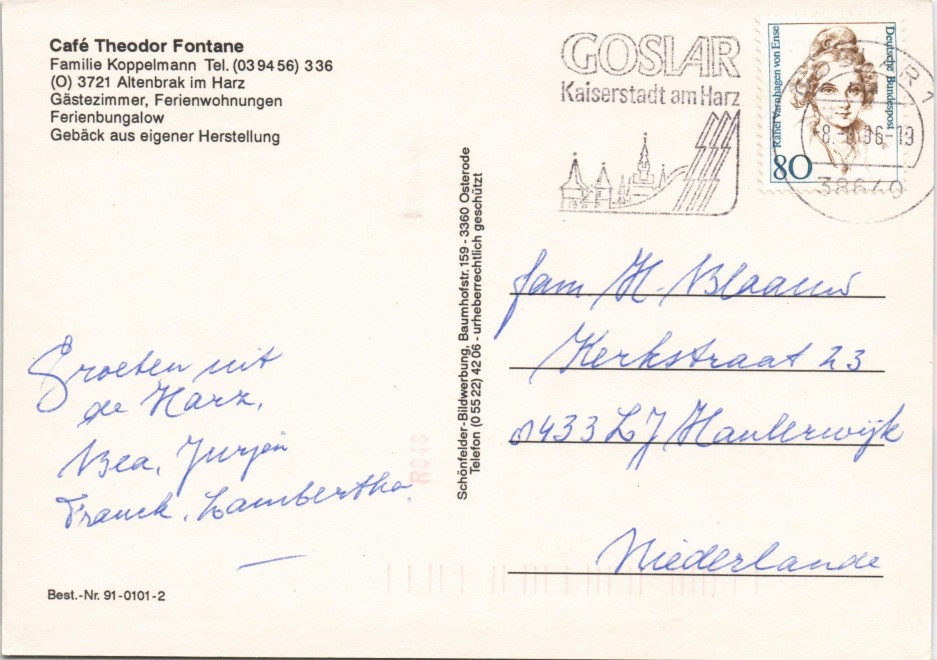 Café Theodor Fontane
Familie Koppelmann Tel. (03 94 56) 3 36
(O) 3721 Altenbrak im Harz
Gästezimmer, Ferienwohnungen
Ferienbungalow
Gebäck aus eigener Herstellung
GOSLAR
Kaiserstadt am Harz
Rahel Varnhagen von Ense
Deutsche Bundespost
80
GOSLAR 1
38640
Schönfelder-Bildwerbung, Baumhofstr. 159 - 3360 Osterode
Telefon (0 55 22) 42 06 - urheberrechtlich geschützt
Groeten uit
de Harz.
Bea, Jurjen
Franck, Lambertha.
fam H. Blaauw
Kerkstraat 23
8433 LJ Haulerwijk
Niederlande
R040
Best.-Nr. 91-0101-2